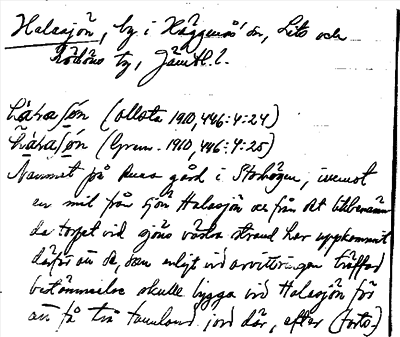 Halasjön, by i Häggenås' sn, Lits och
Rödöns tg, Jämtl. l.
hàʹrasʃön (ollsta 1910, 446:4:24)
hàʹrasʃön (Gren. 1910, 446:4:25)
Namnet på gård i Storhögen, inemot
en mil från sjön Halasjön och från det
da torpet vid sjöns västra strand har uppkommit
därför att de, som enligt vid arvskiftningen träffad
bestämmelse skulle bygga vid Halasjön för
att få två tunnland jord där, efter (forts.)